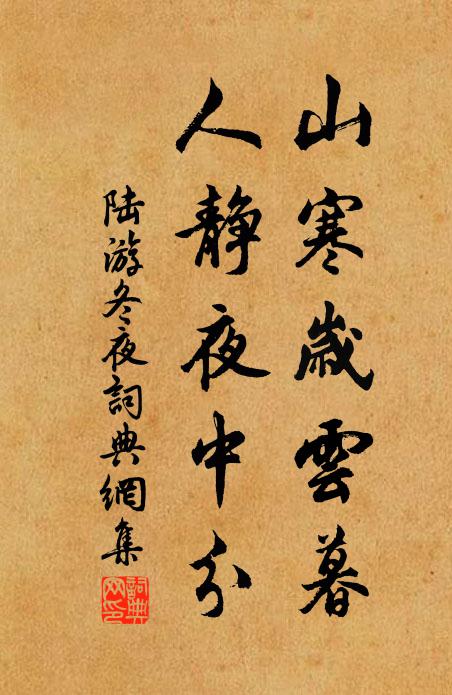 山寒歲雲暮
人靜夜中分
陆游冬夜詞典網集
詞典網印